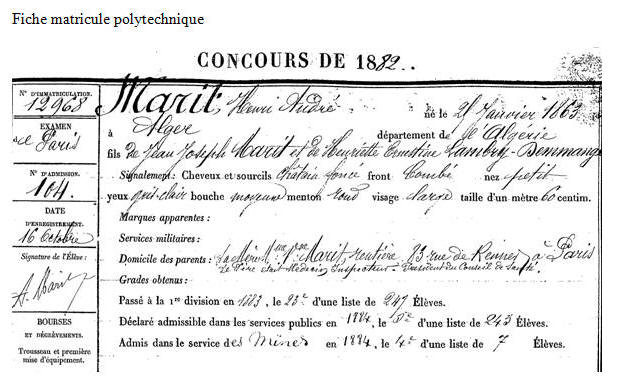 Fiche matricule polytechnique
CONCOURS DE 1882.
N° D'IMMATRICULATION.
12968
EXAMEN
de Paris
N° D'ADMISSION.
104
DATE
D'ENREGISTREMENT.
16 Octobre
Signature de l'Élève:
A. Marit
BOURSES
ET DÉGRÈVEMENTS.
Trousseau et première
mise d'équipement.
Marit, Henri André né le 21 Janvier 1863
à Alger département de l'Algérie
fils de Jean Joseph Marit et de Henriette Ernestine
Signalement: Cheveux et sourcils châtain foncé front bombé nez petit
yeux gris-clair bouche moyenne menton rond visage large taille d'un mètre 60 centim.
Marques apparentes:
Services militaires:
Domicile des parents: Sa Mère, Mme Vve Marit, rentière 23 rue de Rennes à Paris
Le Père était Médecin Inspecteur - Président du Conseil de Santé.
Grades obtenus:
Passé à la 1re division en 1883, le 23e d'une liste de 247 Élèves.
Déclaré admissible dans les services publics en 1884, le d'une liste de 243 Élèves.
Admis dans le service des Mines en 1884, le 4e d'une liste de 7 Élèves.